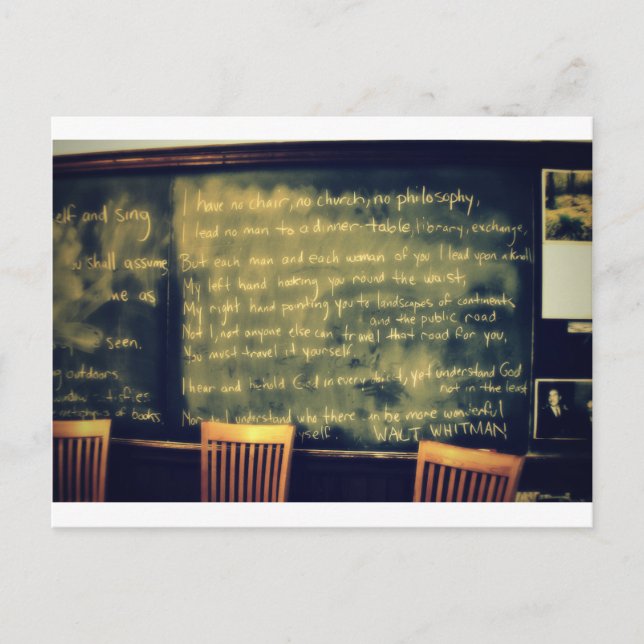 elf and sing
u shall assume,
me as
be seen.
outdoors
satisfies
of books.
I have no chair, no church, no philosophy,
I lead no man to a dinner-table, library, exchange,
But each man and each woman of you I lead upon a knoll
My left hand hooking you round the waist,
My right hand pointing you to landscapes of continents
and the public road
Not I, not anyone else can travel that road for you,
You must travel it yourself.
I hear and behold God in every object, yet understand God
not in the least
Nor do I understand who there can be more wonderful
myself. WALT WHITMAN